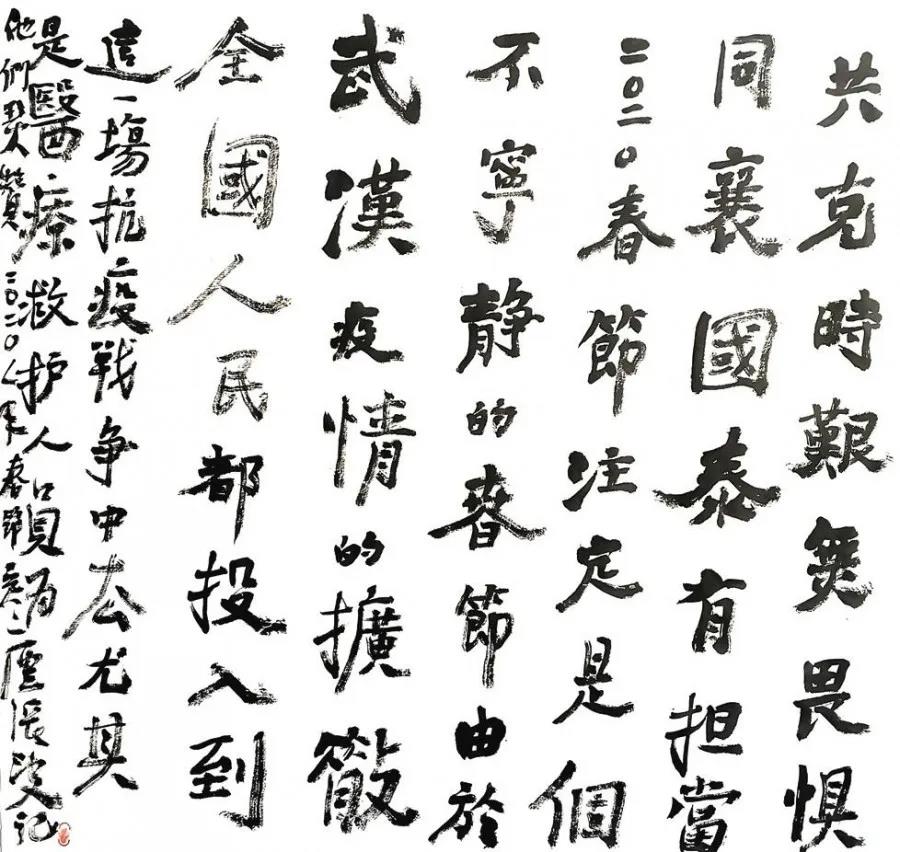 共克時艱無畏惧
同襄國泰有担當
二〇二〇春節注定是個
不寧靜的春節由於
武漢疫情的擴散
全國人民都投入到
這一場抗疫戰争中去尤其
是醫療救护人員為
他們點贊二〇二〇年春節張記